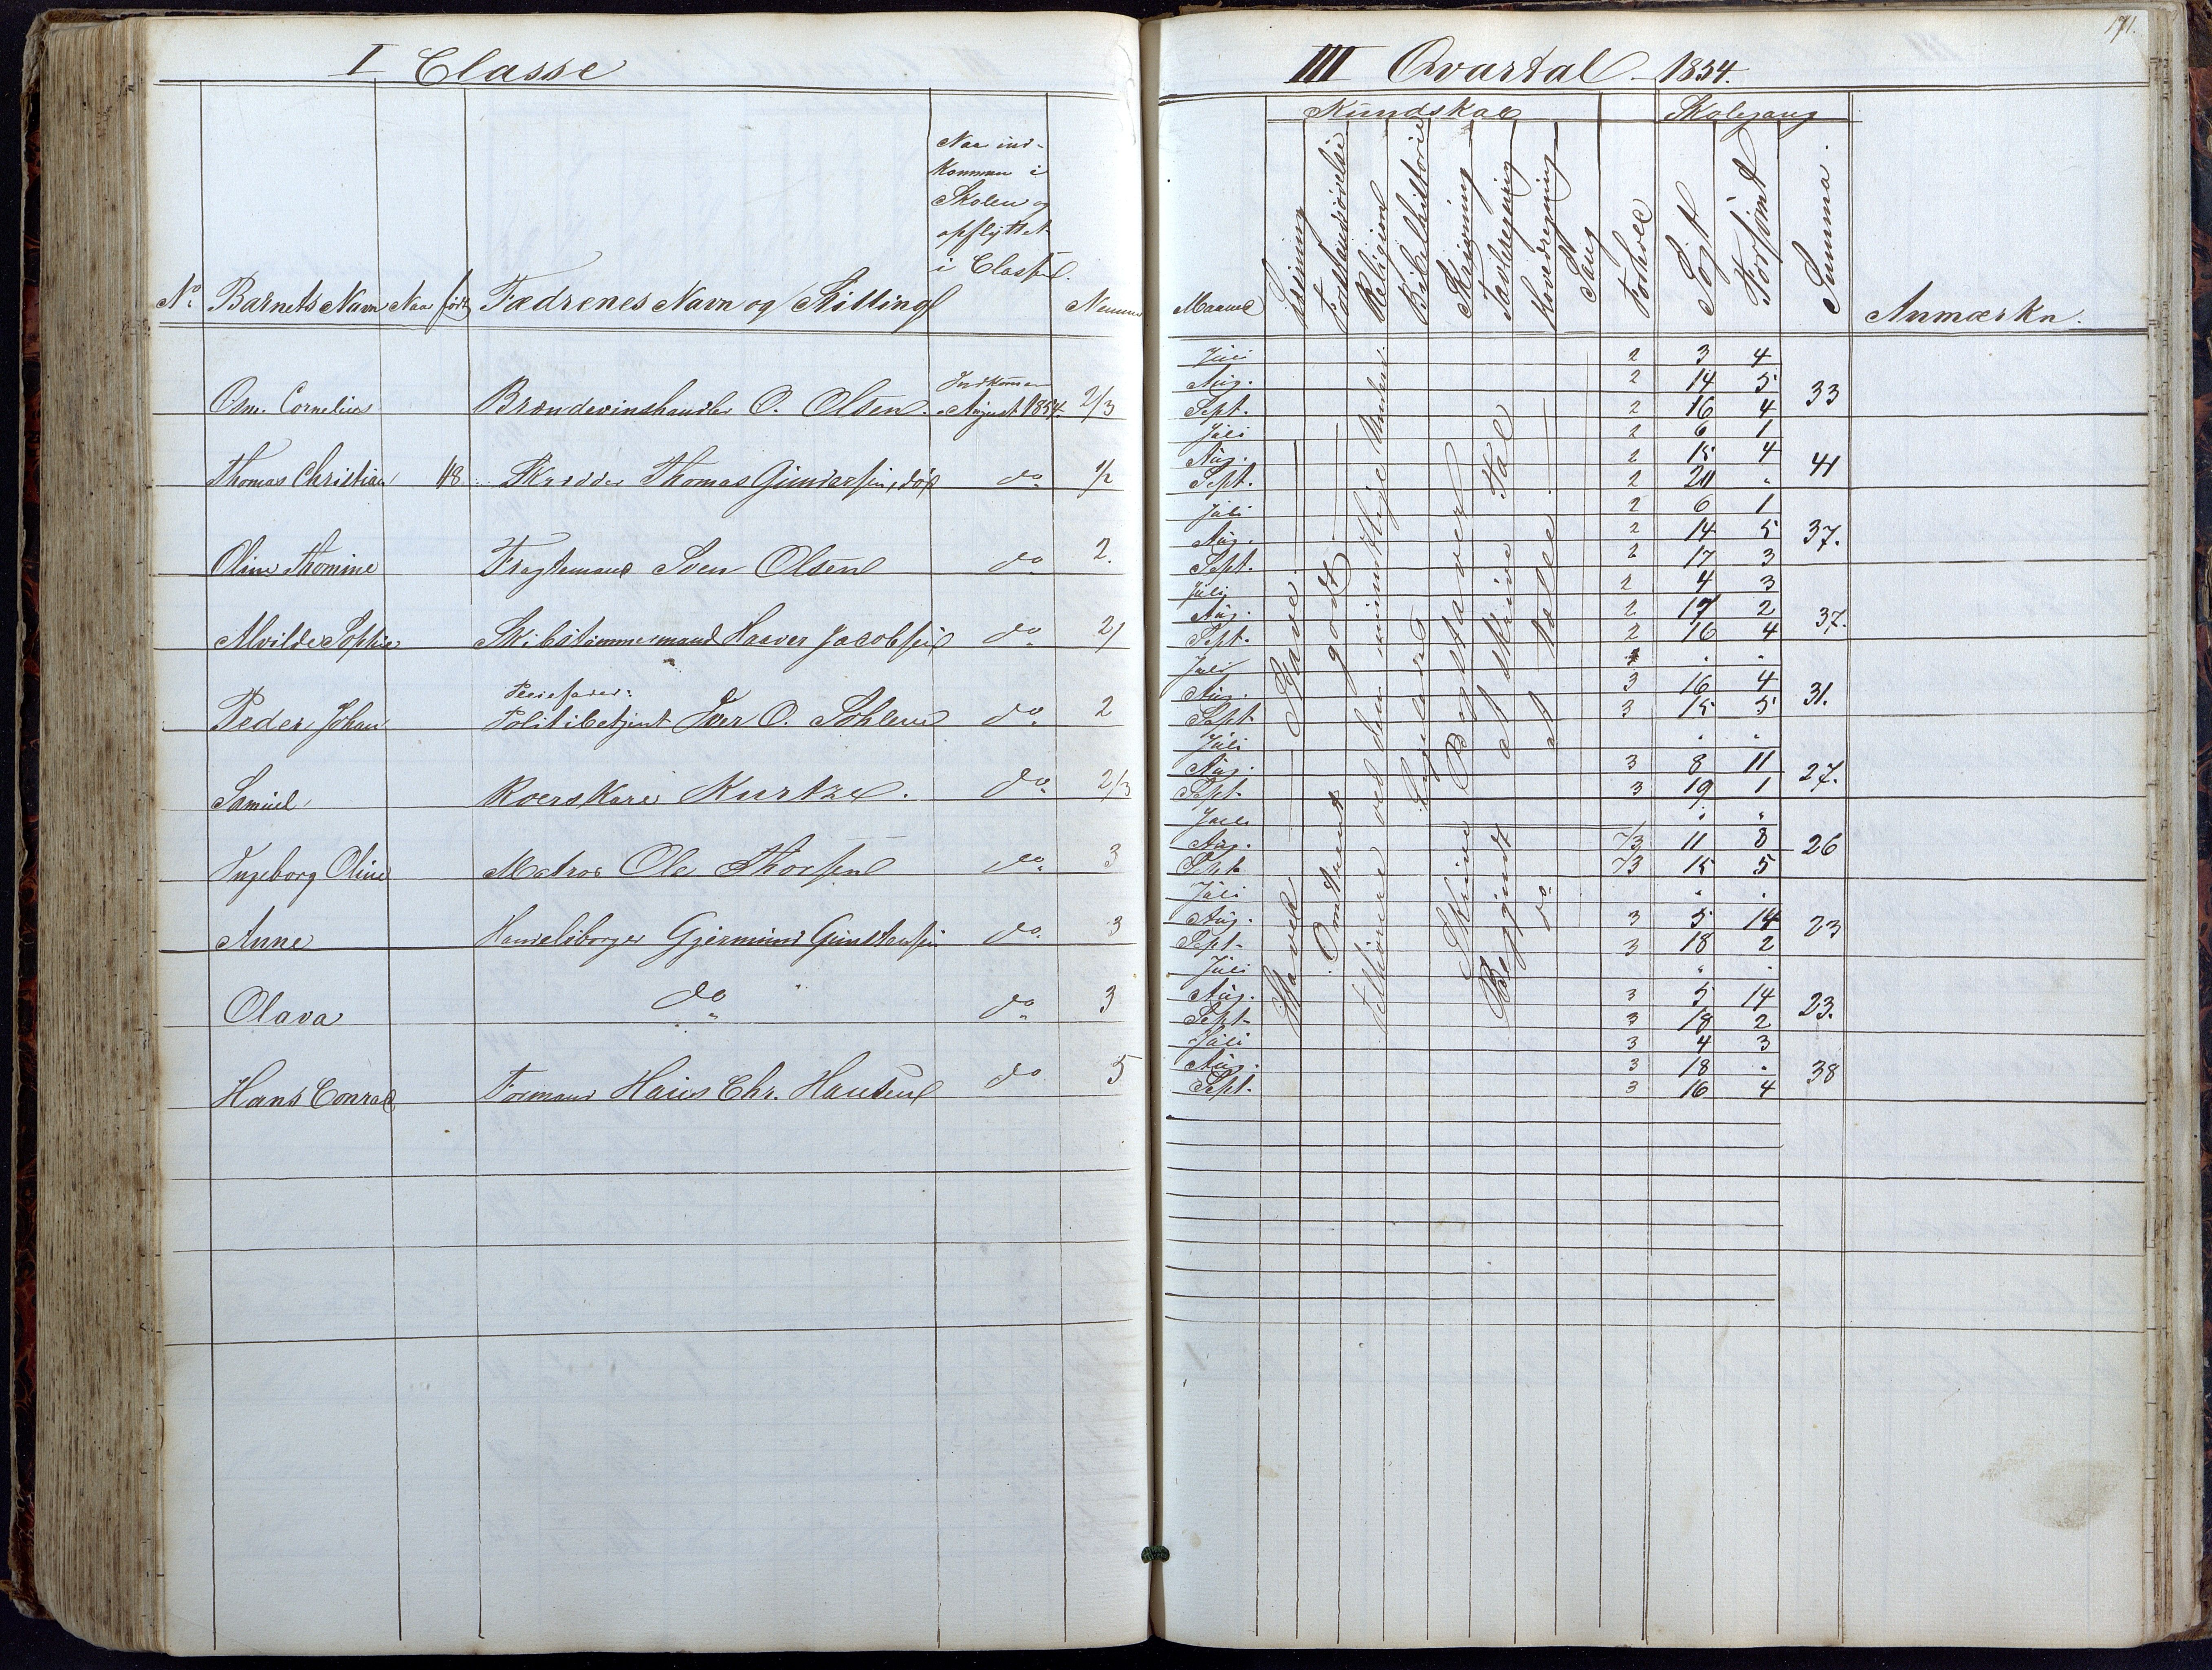 I Classe
Naar ind-
kommen i
Skolen og
opflyttet
i Classen.
No. Barnets Navn Naar født Fædrenes Navn og Stilling
Indkommen
Osm. Cornelius Brændevinshandler O. Olsen. August 1854 2/3
Thomas Christian Skrædder Thomas Gundersen, død do 1/2
Oline Thomine Fragtemand Sven Olsen do 2.
Alvilde Sophie Skibstømmermand Haaver Jacobsen do 2
Pleiefader:
Peder Johan Politibetjent Iver O. do 2
Samuel Kurtze. do 2/3
Ingeborg Oline Matros Ole Thorsen do 3
Anne Handelsborger Gjermund Gunstensen do 3
Olava do do 3
Hans Conrad Formand Hans Chr. Hansen do 5
171.
III Qvartal 1854.
Kundskab Skolegang
Maaned
Læsning
Forstandsøvelse
Religion
Bibelhistorie
Skrivning
Tavleregning
Hovedregning
Sang
Forhold
Søgt
Forsømt
Summa.
Anmærkn.
Juli 2 3 4
Aug. 2 14 5 33
Sept. 2 16 4
Juli 2 6 1
Aug. 2 15 4 41
Sept. 2 20 "
Juli 2 6 1
Aug. 2 14 5 37.
Sept. 2 17 3
Juli 2 4 3
Aug. 2 17 2 37.
Sept. 2 16 4
Juli " "
Aug. 3 16 4 31.
Sept. 3 15 5
Juli " "
Aug. 3 8 11 27.
Sept. 3 19 1
Juli " "
Aug. 2/3 11 8 26
Sept. 2/3 15 5
Juli " "
Aug. 3 5 14 23
Sept. 3 18 2
Juli " "
Aug. 3 5 14 23.
Sept. 3 18 2
Juli 3 4 3
Aug. 3 18 " 38
Sept. 3 16 4
Stave.
Omtrent godt.
ved den mundtlige Underv.
Skrive Bogstaver
Begyndt at skrive Tal
do at tælle.